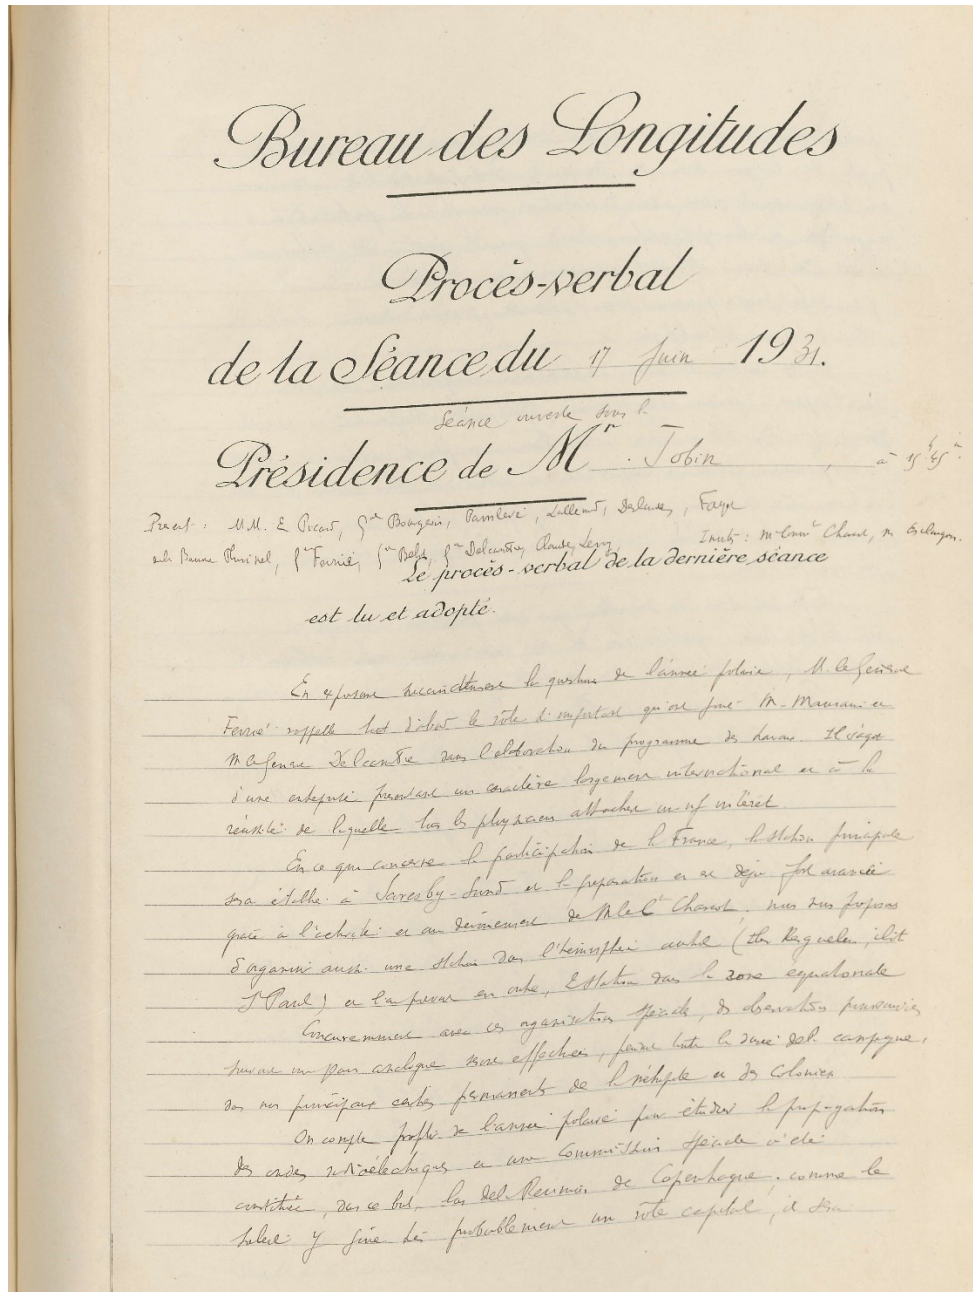 Bureau des Longitudes
Procès-verbal
de la Séance du 17 Juin 1931.
Séance ouverte sous la
Présidence de Mr. Jobin, à 15h 45m
Présents : MM. E. Picard, Gal Bourgeois, Painlevé, Lallemand, Deslandres, Fayet
de la Baume Pluvinel, Gal Ferrié, Gal Bellot, Gal Delcambre, Claude, Levy,
Invités : M. le Comt Charcot, M. Esclangon.
Le procès-verbal de la dernière séance
est lu et adopté.
En exposant succinctement la question de l'année polaire, M. le Général
Ferrié rappelle tout d'abord le rôle si important qu'ont joué M. Maurain et
M. le Général Delcambre dans l'élaboration du programme des travaux. Il s'agit
d'une entreprise présentant un caractère largement international et à la
réussite de laquelle tous les physiciens attachent un vif intérêt.
En ce qui concerne la participation de la France, la station principale
sera établie à Scoresby-Sund et la préparation en est déjà fort avancée
grâce à l'activité et au dévouement de M. le Ct Charcot ; nous nous proposons
d'organiser aussi une station dans l'hémisphère austral (Iles Kerguelen, ilôt
St Paul) et l'on prévoit en outre, station dans la zone equatoriale
Concurremment avec ces organisations spéciales, des observations poursuivies
suivant un plan analogue seront effectuées, pendant toute la durée de la campagne,
dans nos principaux centres permanents de la métropole et des Colonies.
On compte profiter de l'année polaire pour étudier la propagation
des ondes radioélectriques et une Commission spéciale a été
constituée, dans ce but, lors de la Réunion de Copenhague ; comme le
soleil y joue très probablement un rôle capital, il sera